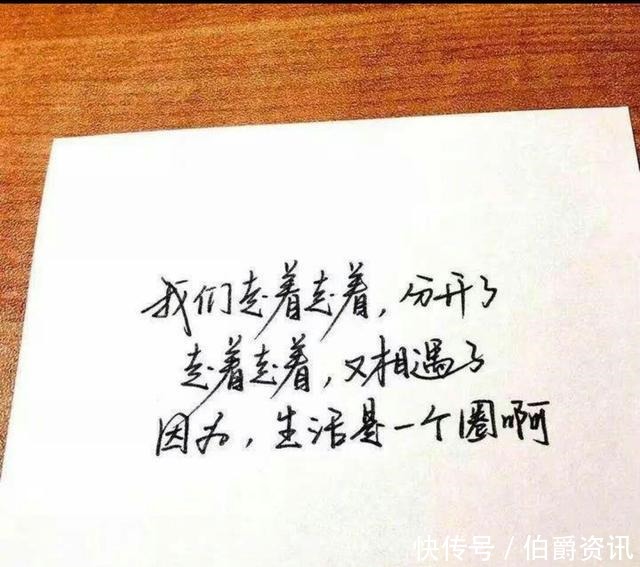 我们走着走着，分开了
走着走着，又相遇了
因为，生活是一个圈啊
快传号/伯爵资讯